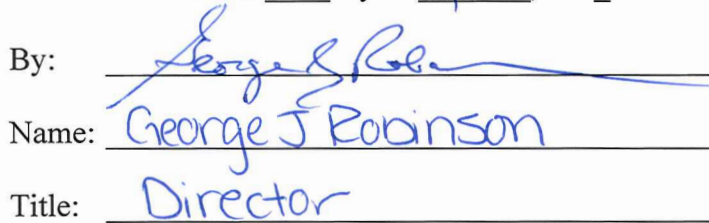 By: George J Robinson
Name: George J Robinson
Title: Director